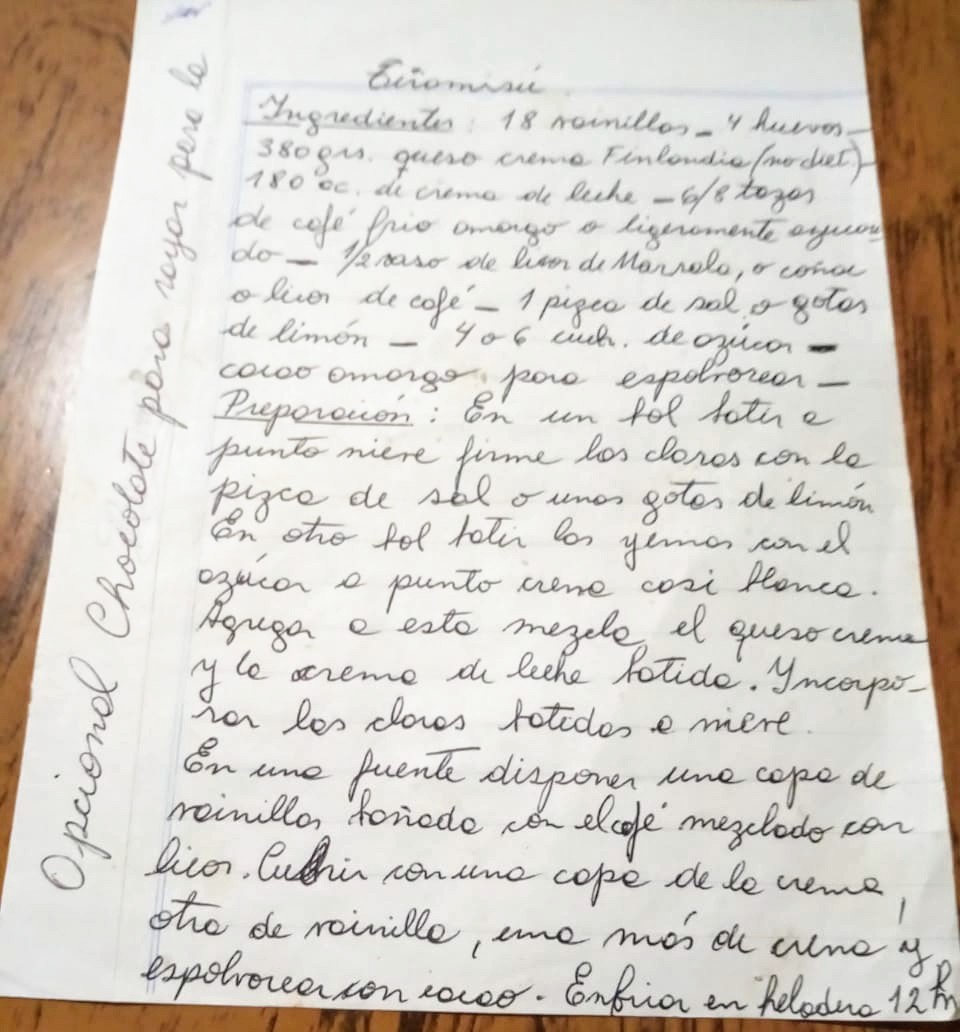 Tiramisú
Ingredientes: 18 vainillas - 4 huevos -
380 grs. queso crema Finlandia (no diet) -
180 cc. de crema de leche - 6/8 tazas
de café frío amargo o ligeramente azucara
do - 1/2 vaso de licor de Marsala, o coñac
o licor de café - 1 pizca de sal o gotas
de limón - 4 o 6 cuch. de azúcar -
cacao amargo para espolvorear -
Preparación: En un bol batir a
punto nieve firme las claras con la
pizca de sal o unas gotas de limón
En otro bol batir las yemas con el
azúcar a punto crema casi blanca.
Agregar a esta mezcla el queso crema
y la crema de leche batida. Incorpo-
rar las claras batidas a nieve.
En una fuente disponer una capa de
vainillas bañada con el café mezclado con
licor. Cubrir con una capa de la crema,
otra de vainilla, una más de crema y
espolvorear con cacao. Enfriar en heladera 12 h
Opcional Chocolate para rayar para la